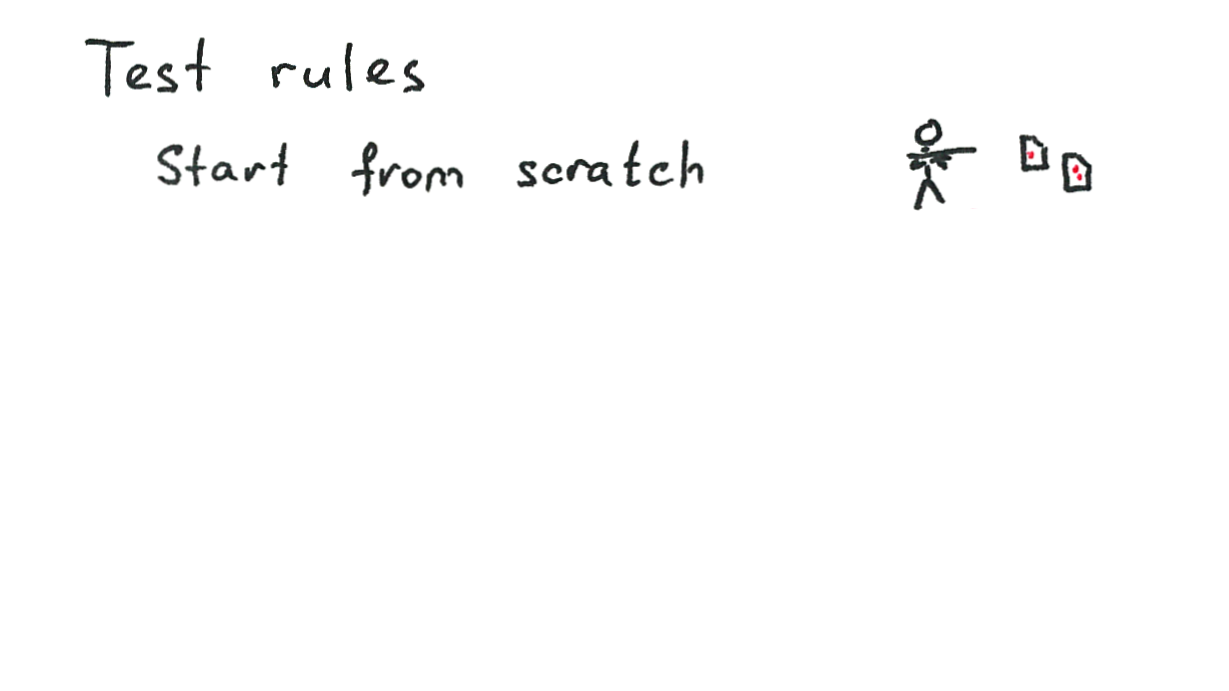 Test rules
Start from scratch